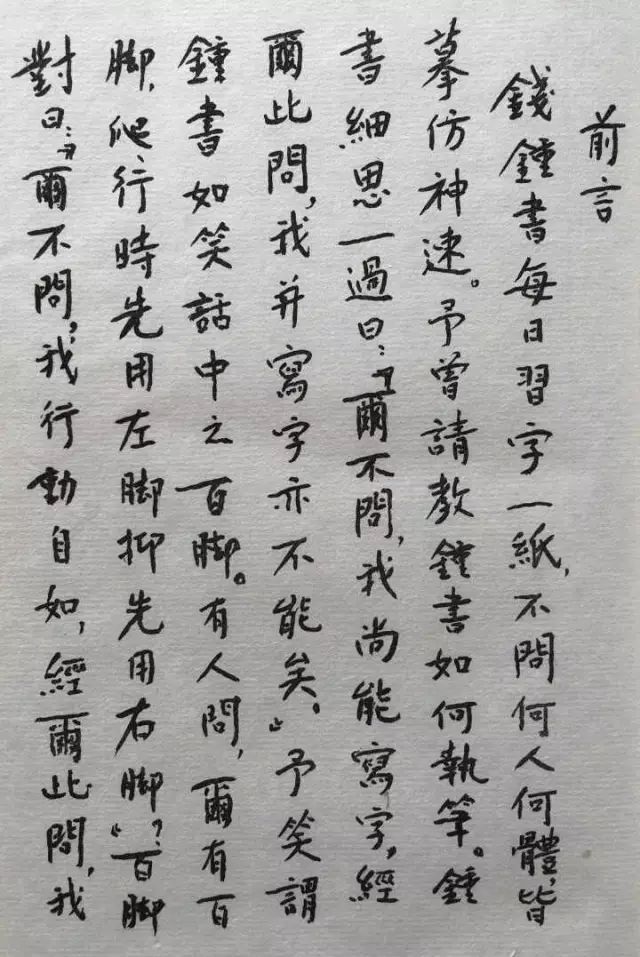 前言
錢鍾書每日習字一紙，不問何人何體，皆
摹仿神速。予曾請教鍾書如何執筆。鍾
書細思一過曰：“爾不問，我尚能寫字，經
爾此問，我并寫字亦不能矣。”予笑謂
鍾書如笑話中之百脚。有人問，爾有百
脚，爬行時先用左脚抑先用右脚？”百脚
對曰：“爾不問，我行動自如，經爾此問，我